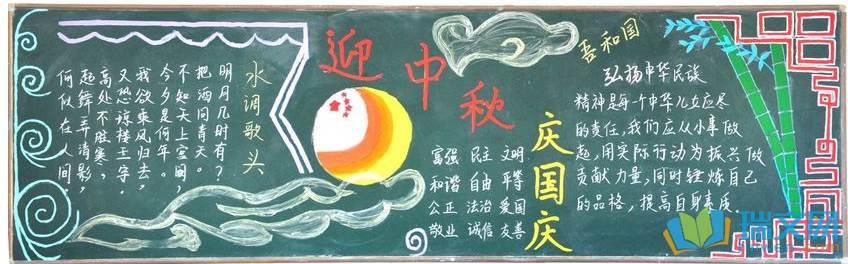 水调歌头
明月几时有?
把酒问青天。
不知天上宫阙,
今夕是何年。
我欲乘风归去,
又恐琼楼玉宇,
高处不胜寒,
起舞弄清影,
何似在人间
迎中秋
富强 民主 文明
和谐 自由 平等
公正 法治 爱国
敬业 诚信 友善
庆国庆
吾和国
弘扬中华民族
精神是每个中华儿女应尽
的责任,我们应从小事做
起,用实际行动为振兴做
贡献力量,同时锤炼自己
的品格,提高自身素质.
瑞文网